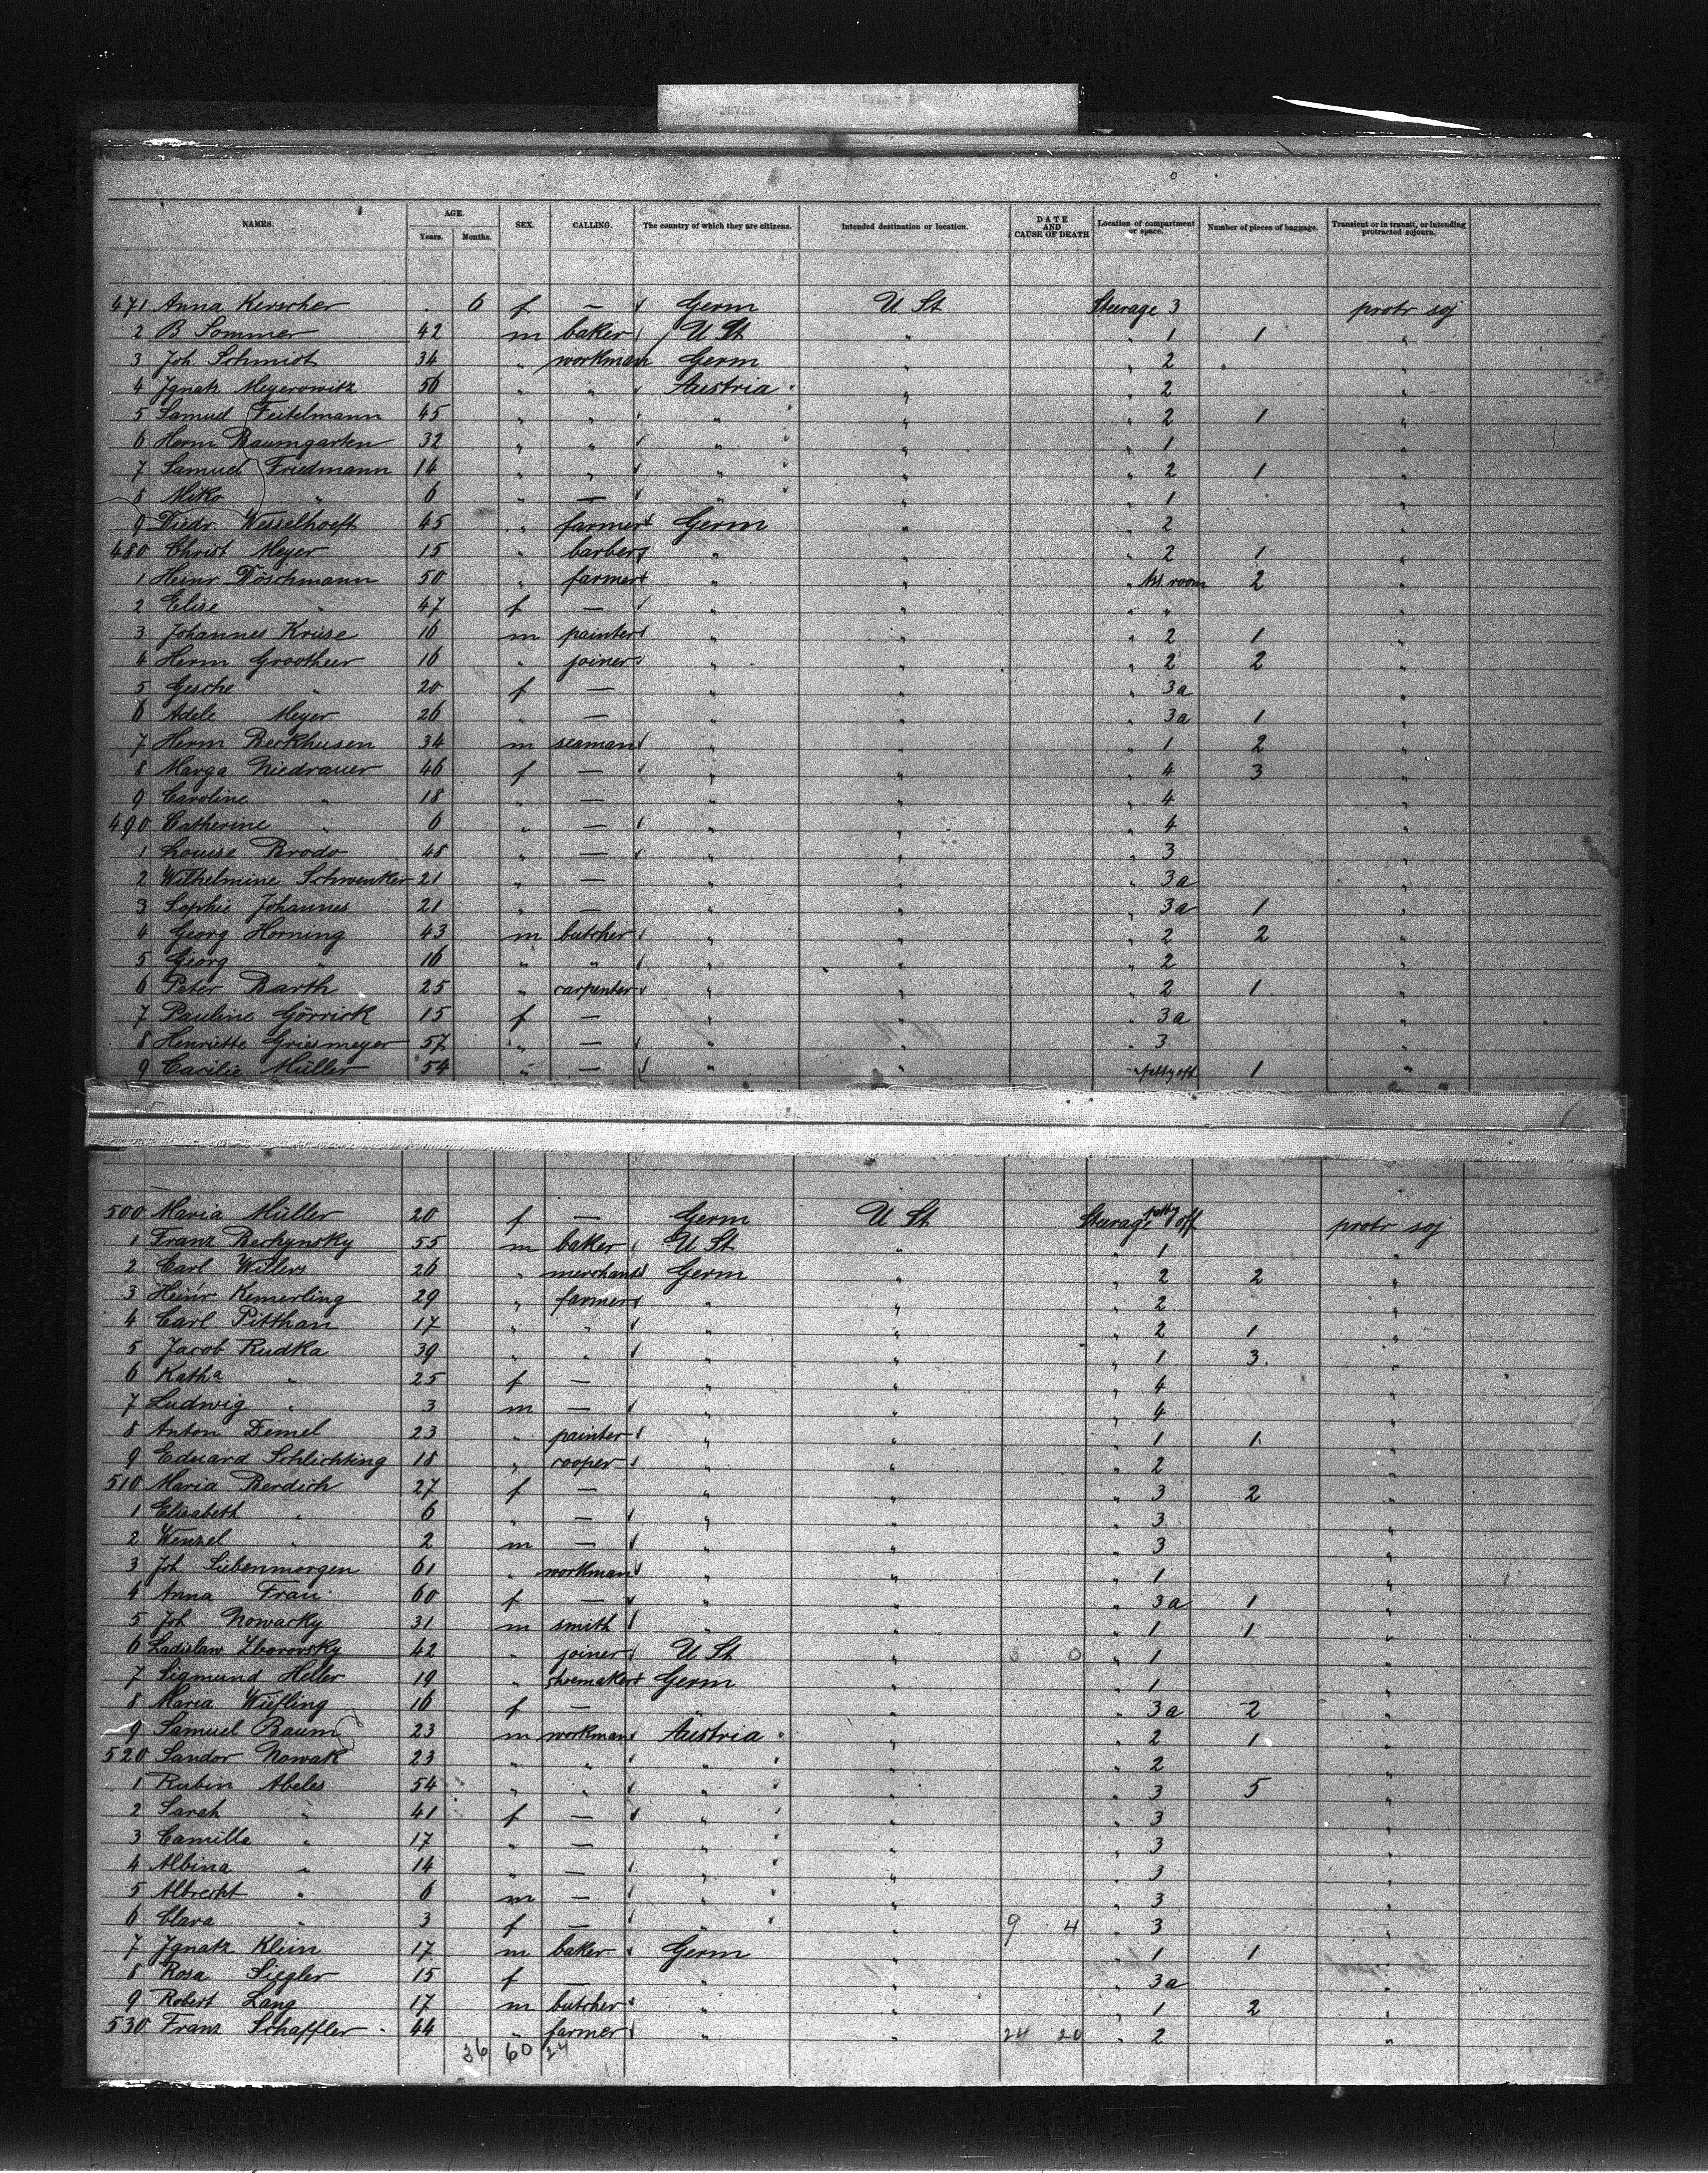 NAMES. AGE. SEX. CALLING. The country of which they are citizens. Intended destination or location. DATE AND CAUSE OF DEATH Location of compartment or space. Number of pieces of baggage. Transient or in transit, or intending protracted sojourn.
Years. Months.
471 Anna Kerscher 6 f — Germ U St Steerage 3 protr soj
2 B Sommer 42 m baker U St " " 1 1 "
3 Joh Schmidt 34 " workman Germ " " 2 "
4 Ignatz Meyerowitz 56 " " Austria " " 2 "
5 Samuel Feitelmann 45 " " " " " 2 1 "
6 Herm Baumgarten 32 " " " " " 1 "
7 Samuel Friedmann 14 " " " " " 2 1 "
8 Miko " 6 " — " " " 1 "
9 Diedr Wesselhoeft 45 " farmer Germ " " 2 "
480 Christ Meyer 15 " barber " " " 2 1 "
1 Heinr Döschmann 50 " farmer " " " room 2 "
2 Elise " 47 f — " " " " "
3 Johannes Kruse 16 m painter " " " 2 1 "
4 Herm Grootheer 16 " joiner " " " 2 2 "
5 Gesche " 20 f — " " " 3a "
6 Adele Meyer 26 " — " " " 3a 1 "
7 Herm Beckhusen 34 m seaman " " " 1 2 "
8 Marga Niedrauer 46 f — " " " 4 3 "
9 Caroline " 18 " — " " " 4 "
490 Catherine " 6 " — " " " 4 "
1 Louise Brodo 48 " — " " " 3 "
2 Wilhelmine Schwenker 21 " — " " " 3a "
3 Sophie Johannes 21 " — " " " 3a 1 "
4 Georg Horning 43 m butcher " " " 2 2 "
5 Georg " 16 " " " " " 2 "
6 Peter Barth 25 " carpenter " " " 2 1 "
7 Pauline Görrick 15 f — " " " 3a "
8 Henriette Griesmeyer 57 " — " " " 3 "
9 Cacilie Müller 54 " — " " " petty off 1 "
500 Maria Müller 20 f — Germ U St Steerage petty off protr soj
1 Franz Bechynsky 55 m baker U St " " 1 "
2 Carl Willers 26 " merchant Germ " " 2 2 "
3 Heinr Kemerling 29 " farmer " " " 2 "
4 Carl Pitthan 17 " " " " " 2 1 "
5 Jacob Rudka 39 " " " " " 1 3 "
6 Katha " 25 f — " " " 4 "
7 Ludwig " 3 m — " " " 4 "
8 Anton Demel 23 " painter " " " 1 1 "
9 Eduard Schlichting 18 " cooper " " " 2 "
510 Maria Berdich 27 f — " " " 3 2 "
1 Elisabeth " 6 " — " " " 3 "
2 Wenzel " 2 m — " " " 3 "
3 Joh Siebenmorgen 61 " workman " " " 1 "
4 Anna Frau 60 f — " " " 3a 1 "
5 Joh Nowacky 31 m smith " " " 1 1 "
6 Ladislaw Zborovsky 42 " joiner U St " 3 0 " 1 "
7 Sigmund Heller 19 " shoemaker Germ " " 1 "
8 Maria Wiefling 16 f — " " " 3a 2 "
9 Samuel Baum 23 m workman Austria " " 2 1 "
520 Sandor Nowak 23 " " " " " 2 "
1 Rubin Abeles 54 " " " " " 3 5 "
2 Sarah " 41 f — " " " 3 "
3 Camilla " 17 " — " " " 3 "
4 Albina " 14 " — " " " 3 "
5 Albrecht " 6 m — " " " 3 "
6 Clara " 3 f — " " 9 4 " 3 "
7 Ignatz Klein 17 m baker Germ " " 1 1 "
8 Rosa Siegler 15 f — " " " 3a "
9 Robert Lang 17 m butcher " " " 1 2 "
530 Franz Schaffler 44 " farmer " " 24 20 " 2 "
36 60 24